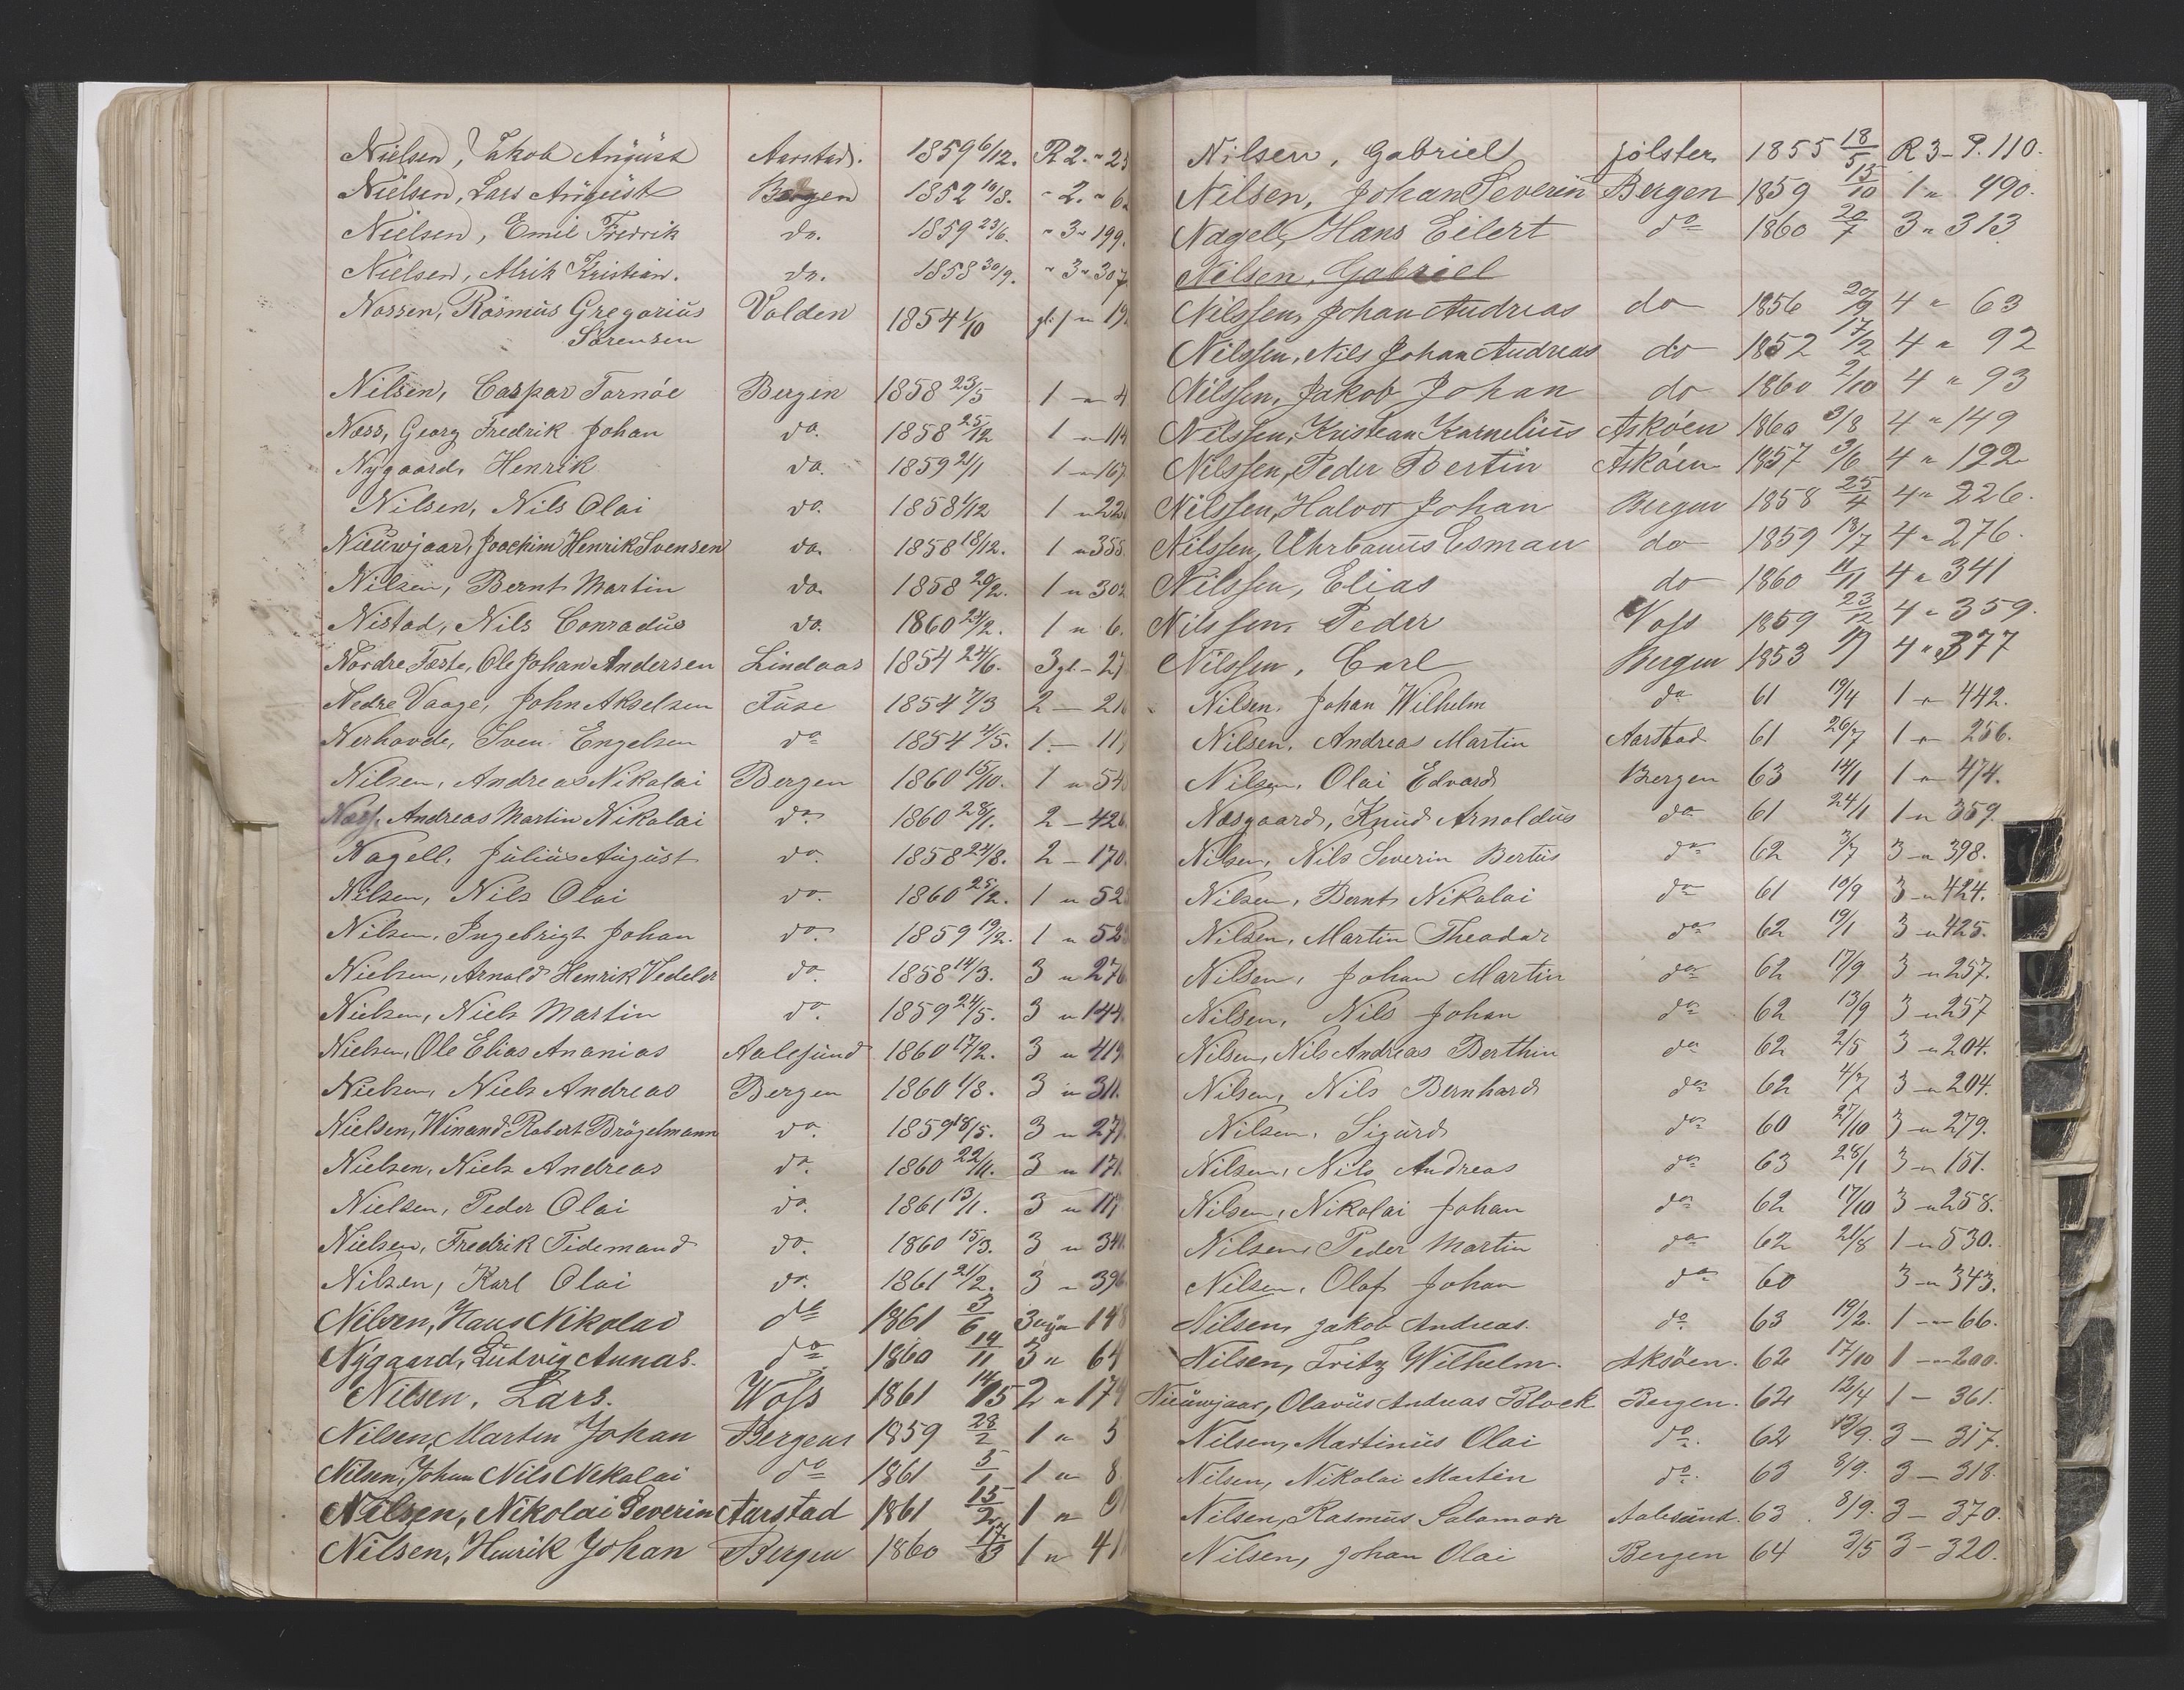 Nielsen, Jakob August Aarstad. 1859 6/12. R 2. " 23
Nielsen, Lars August Bergen 1852 10/8. " 2. " 6
Nielsen, Emil Fredrik do. 1859 23/6. " 3 " 199.
Nielsen, Alrik Kristian. do. 1858 30/9. " 3 " 307
Nossen, Rasmus Gregorius Volden 1854 1/10 19
Sørensen
Nilsen, Caspar Tornöe Bergen 1858 23/5 1 " 4
Næss, Georg Fredrik Johan do. 1858 25/12 1 " 114
Nygaard, Henrik do. 1859 2/1 1 " 167
Nilsen, Nils Olai do. 1858 1/12 1 " 22
Nieuwjaar, Joachim Henrik Svensen do. 1858 18/12. 1 " 355
Nilsen, Bernt Martin do. 1858 20/2. 1 " 302
Nistad, Nils Conradus do. 1860 24/2. 1 " 6.
Nordre Tæste, Ole Johan Andersen Lindaas 1854 24/6. 3 gl. - 27
Nedre Vaage, John Akselsen Fuse 1854 7/3 2 - 21
Nerhovde, Sven Engelsen do 1854 4/5. 1 - 11
Nilsen, Andreas Nikolai Bergen 1860 15/10. 1 " 54
Næss, Andreas Martin Nikolai do. 1860 28/1. 2 - 426
Nagell, Julius August do. 1858 24/8. 2 - 170
Nilsen, Nils Olai do. 1860 25/2. 1 " 52
Nilsen, Ingebrigt Johan do. 1859 19/2. 1 " 52
Nielsen, Arnold Henrik Vedeler do. 1858 14/3. 3 " 276
Nielsen, Niels Martin do. 1859 24/5. 3 " 144.
Nielsen, Ole Elias Ananias Aalesund 1860 17/2. 3 " 419
Nielsen, Niels Andreas Bergen 1860 1/8. 3 " 311.
Nielsen, Winand Robert Brögelmann do. 1859 18/5. 3 " 271
Nielsen, Niels Andreas do. 1860 22/11. 3 " 171.
Nielsen, Peder Olai do. 1861 13/1. 3 " 117
Nielsen, Fredrik Tidemand do. 1860 15/3. 3 " 341.
Nilsen, Karl Olai do. 1861 21/2. 3 " 396
Nilsen, Hans Nikolai do 1861 3/6 148
Nygaard, Ludvig Annas. do 1860 14/11 3 " 64
Nilsen, Lars. Woss 1861 14/5 2 " 174
Nilsen, Martin Johan Bergen 1859 28/2 1 " 5
Nilsen, Johan Nils Nikolai do 1861 5/1 1 " 8
Nilsen, Nikolai Severin Aarstad 1861 15/2 1 " 9
Nilsen, Henrik Johan Bergen 1860 17/3 1 " 41
Nilsen, Gabriel Jölster 1855 18/5 R 3 - P. 110.
Nilsen, Johan Severin Bergen 1859 15/10 1 " 490.
Nagel, Hans Eilert do 1860 20/7 3 " 313
Nilsen, Gabriel
Nilssen, Johan Andreas do 1856 20/9 4 " 63
Nilssen, Nils Johan Andreas do 1852 17/2 4 " 92
Nilssen, Jakob Johan do 1860 2/10 4 " 93
Nilssen, Kristean Karnelius Asköen 1860 3/8 4 " 149
Nilssen, Peder Bertin Asköen 1857 3/6 4 " 192
Nilssen, Halvor Johan Bergen 1858 25/4 4 " 226.
Nilssen, Uhrbanus Esman do 1859 13/7 4 " 276.
Nilssen, Elias do 1860 11/11 4 " 341
Nilssen, Peder Voss 1859 23/12 4 " 359.
Nilssen, Carl Bergen 1853 4 " 377
Nilsen, Johan Wilhelm do 61 19/4 1 " 442.
Nilsen, Andreas Martin Aarstad 61 26/7 1 " 256.
Nilsen, Olai Edvard Bergen 63 14/1 1 " 474.
Næsgaard, Knud Arnoldus do 61 24/1 1 " 359.
Nilsen, Nils Severin Bertus do 62 3/7 3 " 398.
Nilsen, Bernt Nikolai do 61 10/9 3 " 424.
Nilsen, Martin Theodor do 62 19/1 3 " 425.
Nilsen, Johan Martin do 62 17/9 3 " 257.
Nilsen, Nils Johan do 62 13/9 3 " 257
Nilsen, Nils Andreas Berthin do 62 2/5 3 " 204.
Nilsen, Nils Bernhard do 62 4/7 3 " 204.
Nilsen, Sigurd do 60 27/10 3 " 279.
Nilsen, Nils Andreas do 63 28/1 3 " 151.
Nilsen, Nikolai Johan do 62 17/10 3 " 258.
Nilsen, Peder Martin do 62 21/8 1 " 530.
Nilsen, Olaf Johan do 60 3 " 343.
Nilsen, Jakob Andreas. do. 63 19/2. 1 " 66.
Nilsen, Fritz Wilhelm. Aksöen. 62 17/10 1 " 200.
Nieuwjaar, Olavus Andreas Block Bergen. 62 12/4 1 - 361.
Nilsen, Martinus Olai do. 62 13/9. 3 - 317.
Nilsen, Nikolai Martin do. 63 8/9. 3 - 318.
Nilsen, Rasmus Salamon Aalesund. 63 8/9. 3 - 370.
Nilsen, Johan Olai Bergen 64 3/5 3 - 320.